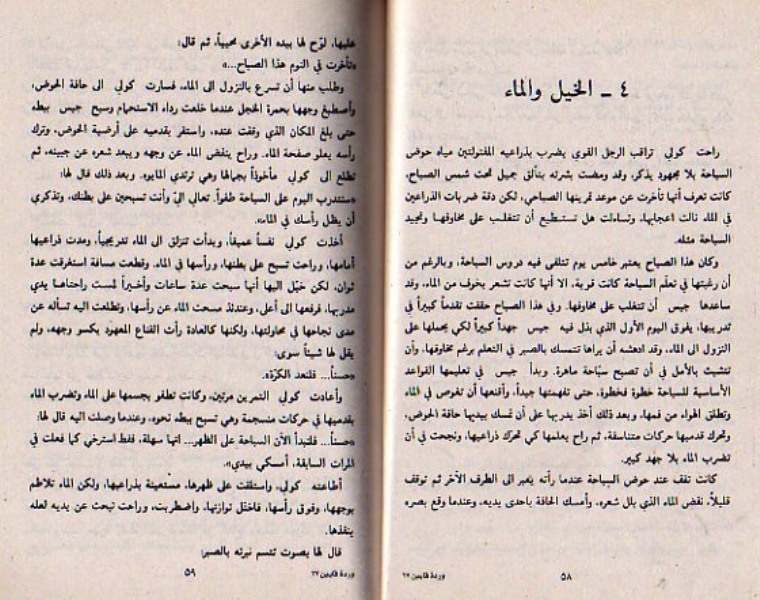 ٤ ـ الخيل والماء
راحت كولي تراقب الرجل القوي يضرب بذراعيه المفتولتين مياه حوض
السباحة بلا مجهود يذكر، وقد ومضت بشرته بتألق جميل تحت شمس الصباح.
كانت تعرف أنها تأخرت عن موعد تمرينها الصباحي، لكن دقة ضربات الذراعين
في الماء نالت اعجابها، وتساءلت هل تستطيع أن تتغلب على مخاوفها وتجيد
السباحة مثله.
وكان هذا الصباح يعتبر خامس يوم تتلقى فيه دروس السباحة، وبالرغم من
أن رغبتها في تعلّم السباحة كانت قوية، الا أنها كانت تشعر بخوف من الماء، وقد
ساعدها جيس أن تتغلب على مخاوفها. وفي هذا الصباح حققت تقدماً كبيراً في
تدريبها، يفوق اليوم الأول الذي بذل فيه جيس جهداً كبيراً لكي يحملها على
النزول الى الماء، وقد ادهشه أن يراها تتمسك بالصبر في التعلم برغم مخاوفها، وأن
تتشبث بالأمل في أن تصبح سبّاحة ماهرة. وبدأ جيس في تعليمها القواعد
الأساسية للسباحة خطوة فخطوة، حتى تفهمتها جيداً، وأقنعها أن تغوص في الماء
وتطلق الهواء من فمها، وبعد ذلك أخذ يدربها على أن تمسك بيديها حافة الحوض،
وتحرك قدميها حركات متناسقة، ثم راح يعلمها كي تحرّك ذراعيها، ونجحت في أن
تضرب الماء بلا جهد كبير.
كانت تقف عند حوض السباحة عندما رأته يعبر الى الطرف الآخر ثم توقف
قليلاً، نفض الماء الذي بلل شعره، وأمسك الحافة باحدى يديه، وعندما وقع بصره
٥٨
وردة قايين ٢٧
عليها، لوّح لها بيده الأخرى محيياً، ثم قال:
«تأخرت في النوم هذا الصباح...»
وطلب منها أن تسرع بالنزول الى الماء، فسارت كولي الى حافة الحوض،
وأصطبغ وجهها بحمرة الخجل عندما خلعت رداء الاستحمام وسبح جيس ببطء
حتى بلغ المكان الذي وقفت عنده، واستقر بقدميه على أرضية الحوض، وترك
رأسه يعلو صفحة الماء. وراح ينفض الماء عن وجهه ويبعد شعره عن جبينه، ثم
تطلع الى كولي مأخوذاً بجمالها وهي ترتدي المايوه. وبعد ذلك قال لها:
«سنتدرب اليوم على السباحة طفواً. تعالي اليّ وأنت تسبحين على بطنك، وتذكري
أن يظل رأسك في الماء».
أخذت كولي نفساً عميقاً، وبدأت تنزلق الى الماء تدريجياً، ومدت ذراعيها
أمامها، وراحت تسبح على بطنها، ورأسها في الماء، وقطعت مسافة استغرقت عدة
ثوان، لكن خيّل اليها أنها سبحت عدة ساعات وأخيراً لمست راحتاها يدي
مدربها، فرفعها الى أعلى، وعندئذ مسحت الماء عن رأسها، وتطلعت اليه تسأله عن
مدى نجاحها في محاولتها، ولكنها كالعادة رأت القناع المعهود يكسو وجهه، ولم
يقل لها شيئاً سوى:
«حسناً... فلنعد الكرّة».
وأعادت كولي التمرين مرتين، وكانت تطفو بجسمها على الماء وتضرب الماء
بقدميها في حركات منسجمة وهي تسبح ببطء نحوه، وعندما وصلت اليه قال لها:
«حسناً... فلنبدأ الآن السباحة على الظهر... انها سهلة، فقط استرخي كما فعلت في
المرات السابقة، أمسكي بيدي».
أطاعته كولي، واستلقت على ظهرها، مستعينة بذراعيها، ولكن الماء تلاطم
بوجهها، وفوق رأسها، فاختل توازنها، واضطربت، وراحت تبحث عن يديه لعله
ينقذها.
قال لها بصوت تتسم نبرته بالصبر:
٥٩
وردة قايين ٢٧